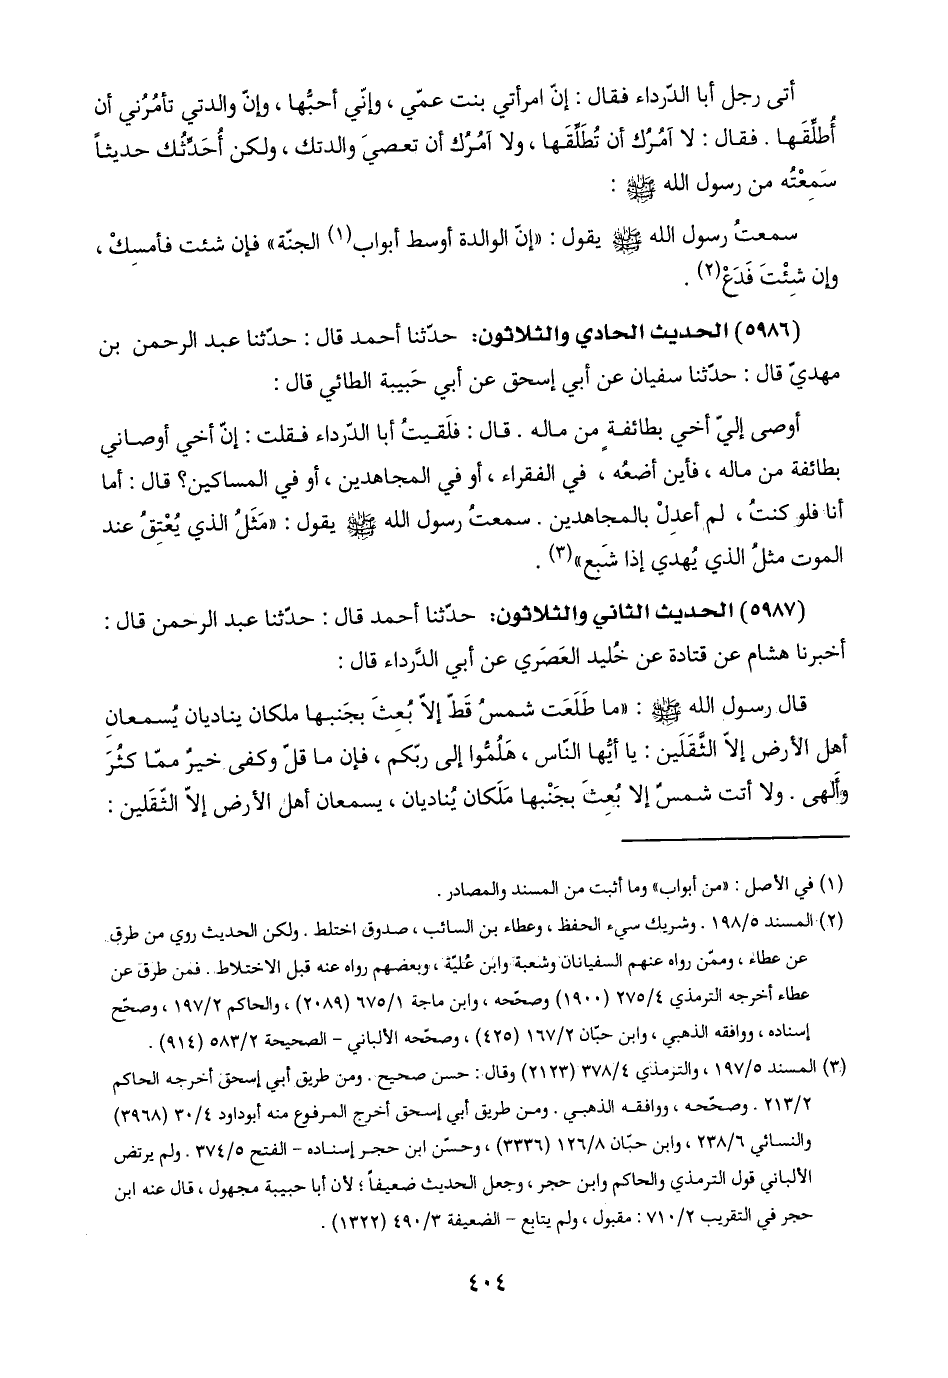 أتى رجل أبا الدّرداء فقال : إنّ امرأتي بنت عمّي ، وإنّي أحبُّها ، وإنّ والدتي تأمُرُني أن
أُطلِّقَها . فقال : لا آمُرُك أن تُطَلِّقَها ، ولا آمُرُك أن تعصيَ والدتك ، ولكن أُحَدِّثُك حديثاً
سَمِعْتُه من رسول الله ﷺ :
سمعتُ رسول الله ﷺ يقول : «إنّ الوالدة أوسط أبواب(١) الجنّة» فإن شئت فأمسِكْ ،
وإن شِئْتَ فَدَعْ(٢) .
(٥٩٨٦) الحديث الحادي والثلاثون: حدّثنا أحمد قال : حدّثنا عبد الرحمن بن
مهديّ قال : حدّثنا سفيان عن أبي إسحق عن أبي حَبيبة الطائي قال :
أوصى إليّ أخي بطائفةٍ من ماله . قال : فلَقيتُ أبا الدّرداء فقلت : إنّ أخي أوصاني
بطائفة من ماله ، فأين أضعُه ، في الفقراء ، أو في المجاهدين ، أو في المساكين؟ قال : أما
أنا فلو كنتُ ، لم أعدِلْ بالمجاهدين . سمعتُ رسول الله ﷺ يقول : «مَثَلُ الذي يُعْتِقُ عند
الموت مثلُ الذي يُهدي إذا شَبِع»(٣) .
(٥٩٨٧) الحديث الثاني والثلاثون: حدّثنا أحمد قال : حدّثنا عبد الرحمن قال :
أخبرنا هشام عن قتادة عن خُليد العَصَري عن أبي الدَّرداء قال :
قال رسول الله ﷺ : «ما طَلَعَت شمسُ قَطّ إلاّ بُعثَ بجَنبها ملكان يناديان يُسمعانِ
أهل الأرض إلاّ الثَّقَلَين : يا أيُّها النّاس ، هَلُمُّوا إلى ربّكم ، فإن ما قلّ وكفى خيرٌ ممّا كثُرَ
وأَلهى . ولا أتت شمسٌ إلا بُعِثَ بجَنْبها مَلَكان يُناديان ، يسمعان أهل الأرض إلاّ الثّقلين :
(١) في الأصل : «من أبواب» وما أثبت من المسند والمصادر .
(٢) المسند ١٩٨/٥ . وشريك سيء الحفظ ، وعطاء بن السائب ، صدوق اختلط . ولكن الحديث روي من طرق
عن عطاء ، وممّن رواه عنهم السفيانان وشعبة وابن عُليّة ، وبعضهم رواه عنه قبل الاختلاط . فمن طرق عن
عطاء أخرجه الترمذي ٢٧٥/٤ (١٩٠٠) وصحّحه ، وابن ماجة ٦٧٥/١ (٢٠٨٩) ، والحاكم ١٩٧/٢ ، وصحّح
إسناده ، ووافقه الذهبي ، وابن حبّان ١٦٧/٢ (٤٢٥) ، وصحّحه الألباني – الصحيحة ٥٨٣/٢ (٩١٤) .
(٣) المسند ١٩٧/٥ ، والترمذي ٣٧٨/٤ (٢١٢٣) وقال : حسن صحيح . ومن طريق أبي إسحق أخرجه الحاكم
٢١٣/٢ . وصحّحه ، ووافقه الذهبي . ومن طريق أبي إسحق أخرج المرفوع منه أبوداود ٣٠/٤ (٣٩٦٨)
والنسائي ٢٣٨/٦ ، وابن حبّان ١٢٦/٨ (٣٣٣٦) ، وحسّن ابن حجر إسناده – الفتح ٣٧٤/٥ . ولم يرتض
الألباني قول الترمذي والحاكم وابن حجر ، وجعل الحديث ضعيفاً ؛ لأن أبا حبيبة مجهول ، قال عنه ابن
حجر في التقريب ٧١٠/٢ : مقبول ، ولم يتابع – الضعيفة ٤٩٠/٣ (١٣٢٢) .
٤٠٤